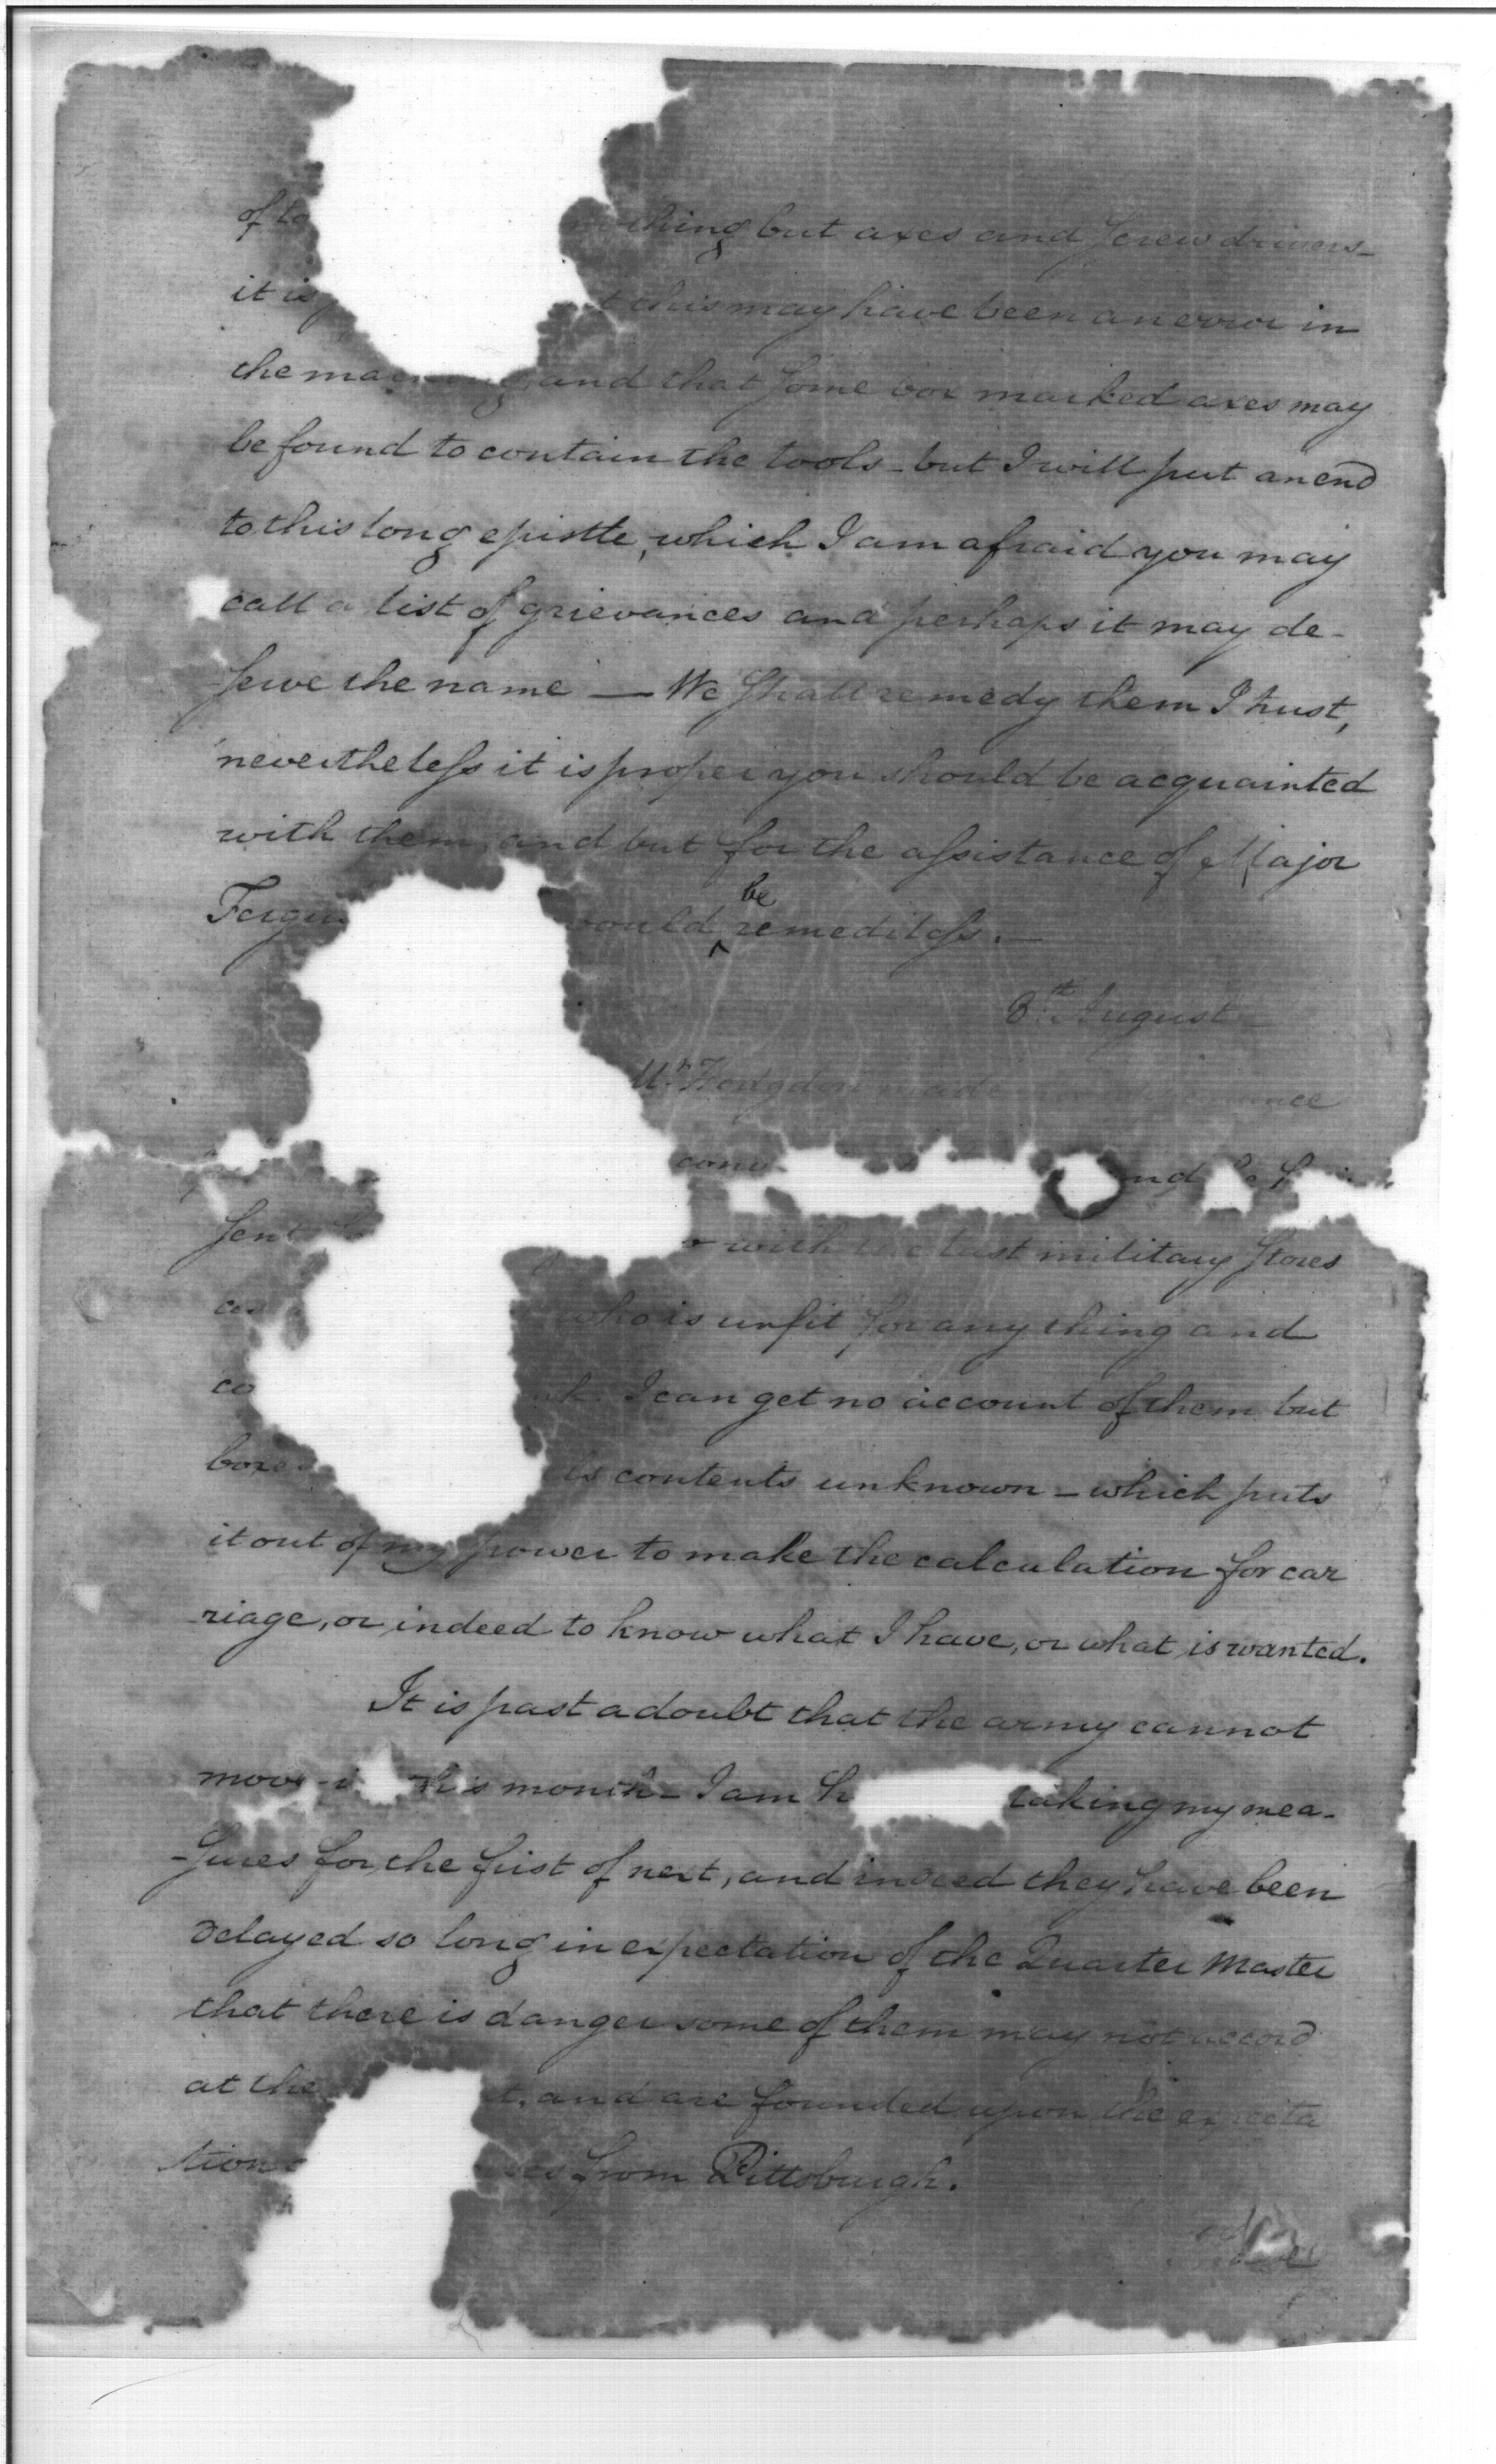 of to nothing but axes and Screw drivers_
it is this may have been an error in
the and that Some box marked axes may
be found to contain the tools_ but I will put an end
to this long epistle, which I am afraid you may
call a list of grievances and perhaps it may de-
-serve the name — We Shall remedy them I trust,
nevertheless it is proper you should be acquainted
with them, and but for the assistance of Major
would be remediless. —
8th August
Mr. Hodgdon made
and
Sent with the last military Stores
who is unfit for any thing and
I can get no account of them but
contents unknown _ which puts
it out of my power to make the calculation for car
riage, or indeed to know what I have, or what is wanted.
It is past a doubt that the army cannot
move this month_ I am taking my mea-
-sures for the first of next, and indeed they have been
delayed so long in expectation of the Quarter Master
that there is danger some of them may not accord
at the and are founded upon the expecta
tion from Pittsburgh.